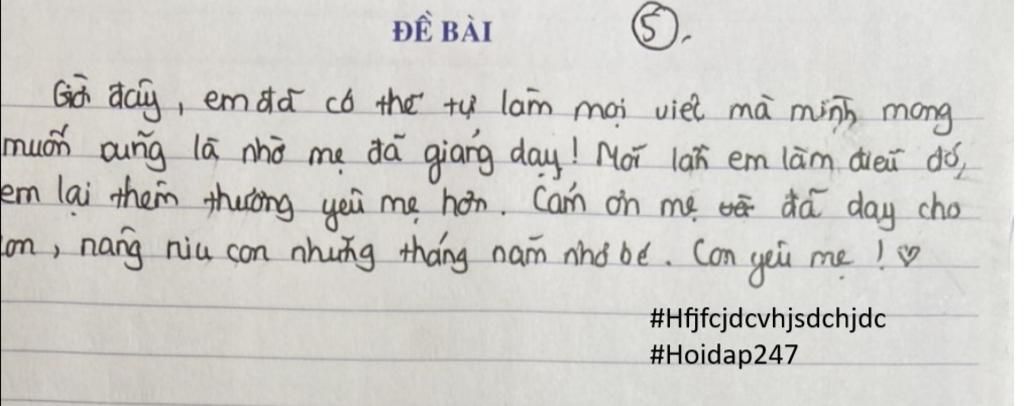 ĐỀ BÀI 5.
Giờ đây, em đã có thể tự làm mọi việt mà mình mong
muốn cũng là nhờ mẹ đã giảng dạy! Mỗi lần em làm điều đó,
em lại thêm thương yêu mẹ hơn. Cảm ơn mẹ đã dạy cho
con, nâng niu con những tháng năm nhỏ bé. Con yêu mẹ! ♡
#Hfjfcjdcvhjsdchjdc
#Hoidap247